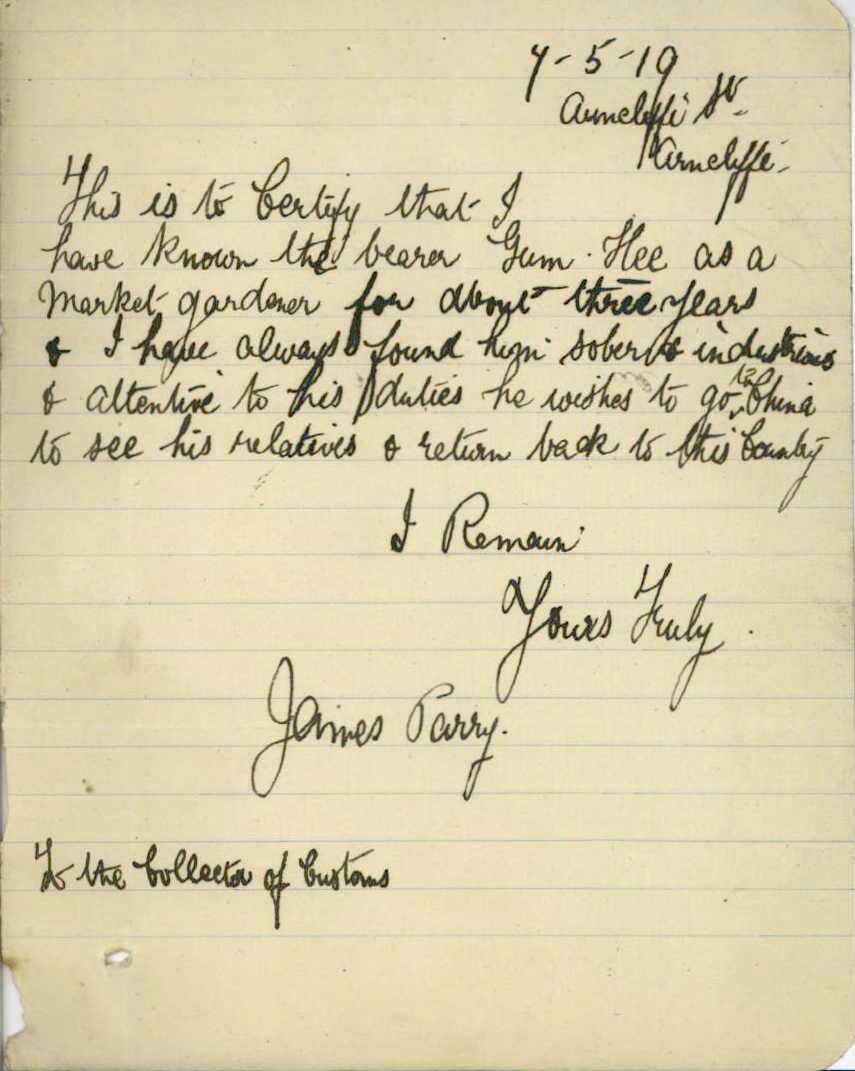 7-5-19
Arncliffe St.
Arncliffe.
This is to Certify that I
have known the bearer Gum Hee as a
Market gardener for about three years
& I have always found him sober & industrious
& attentive to his duties he wishes to go to China
to see his relatives & return back to this Country
I Remain
Yours Truly.
James Parry.
To the Collector of Customs